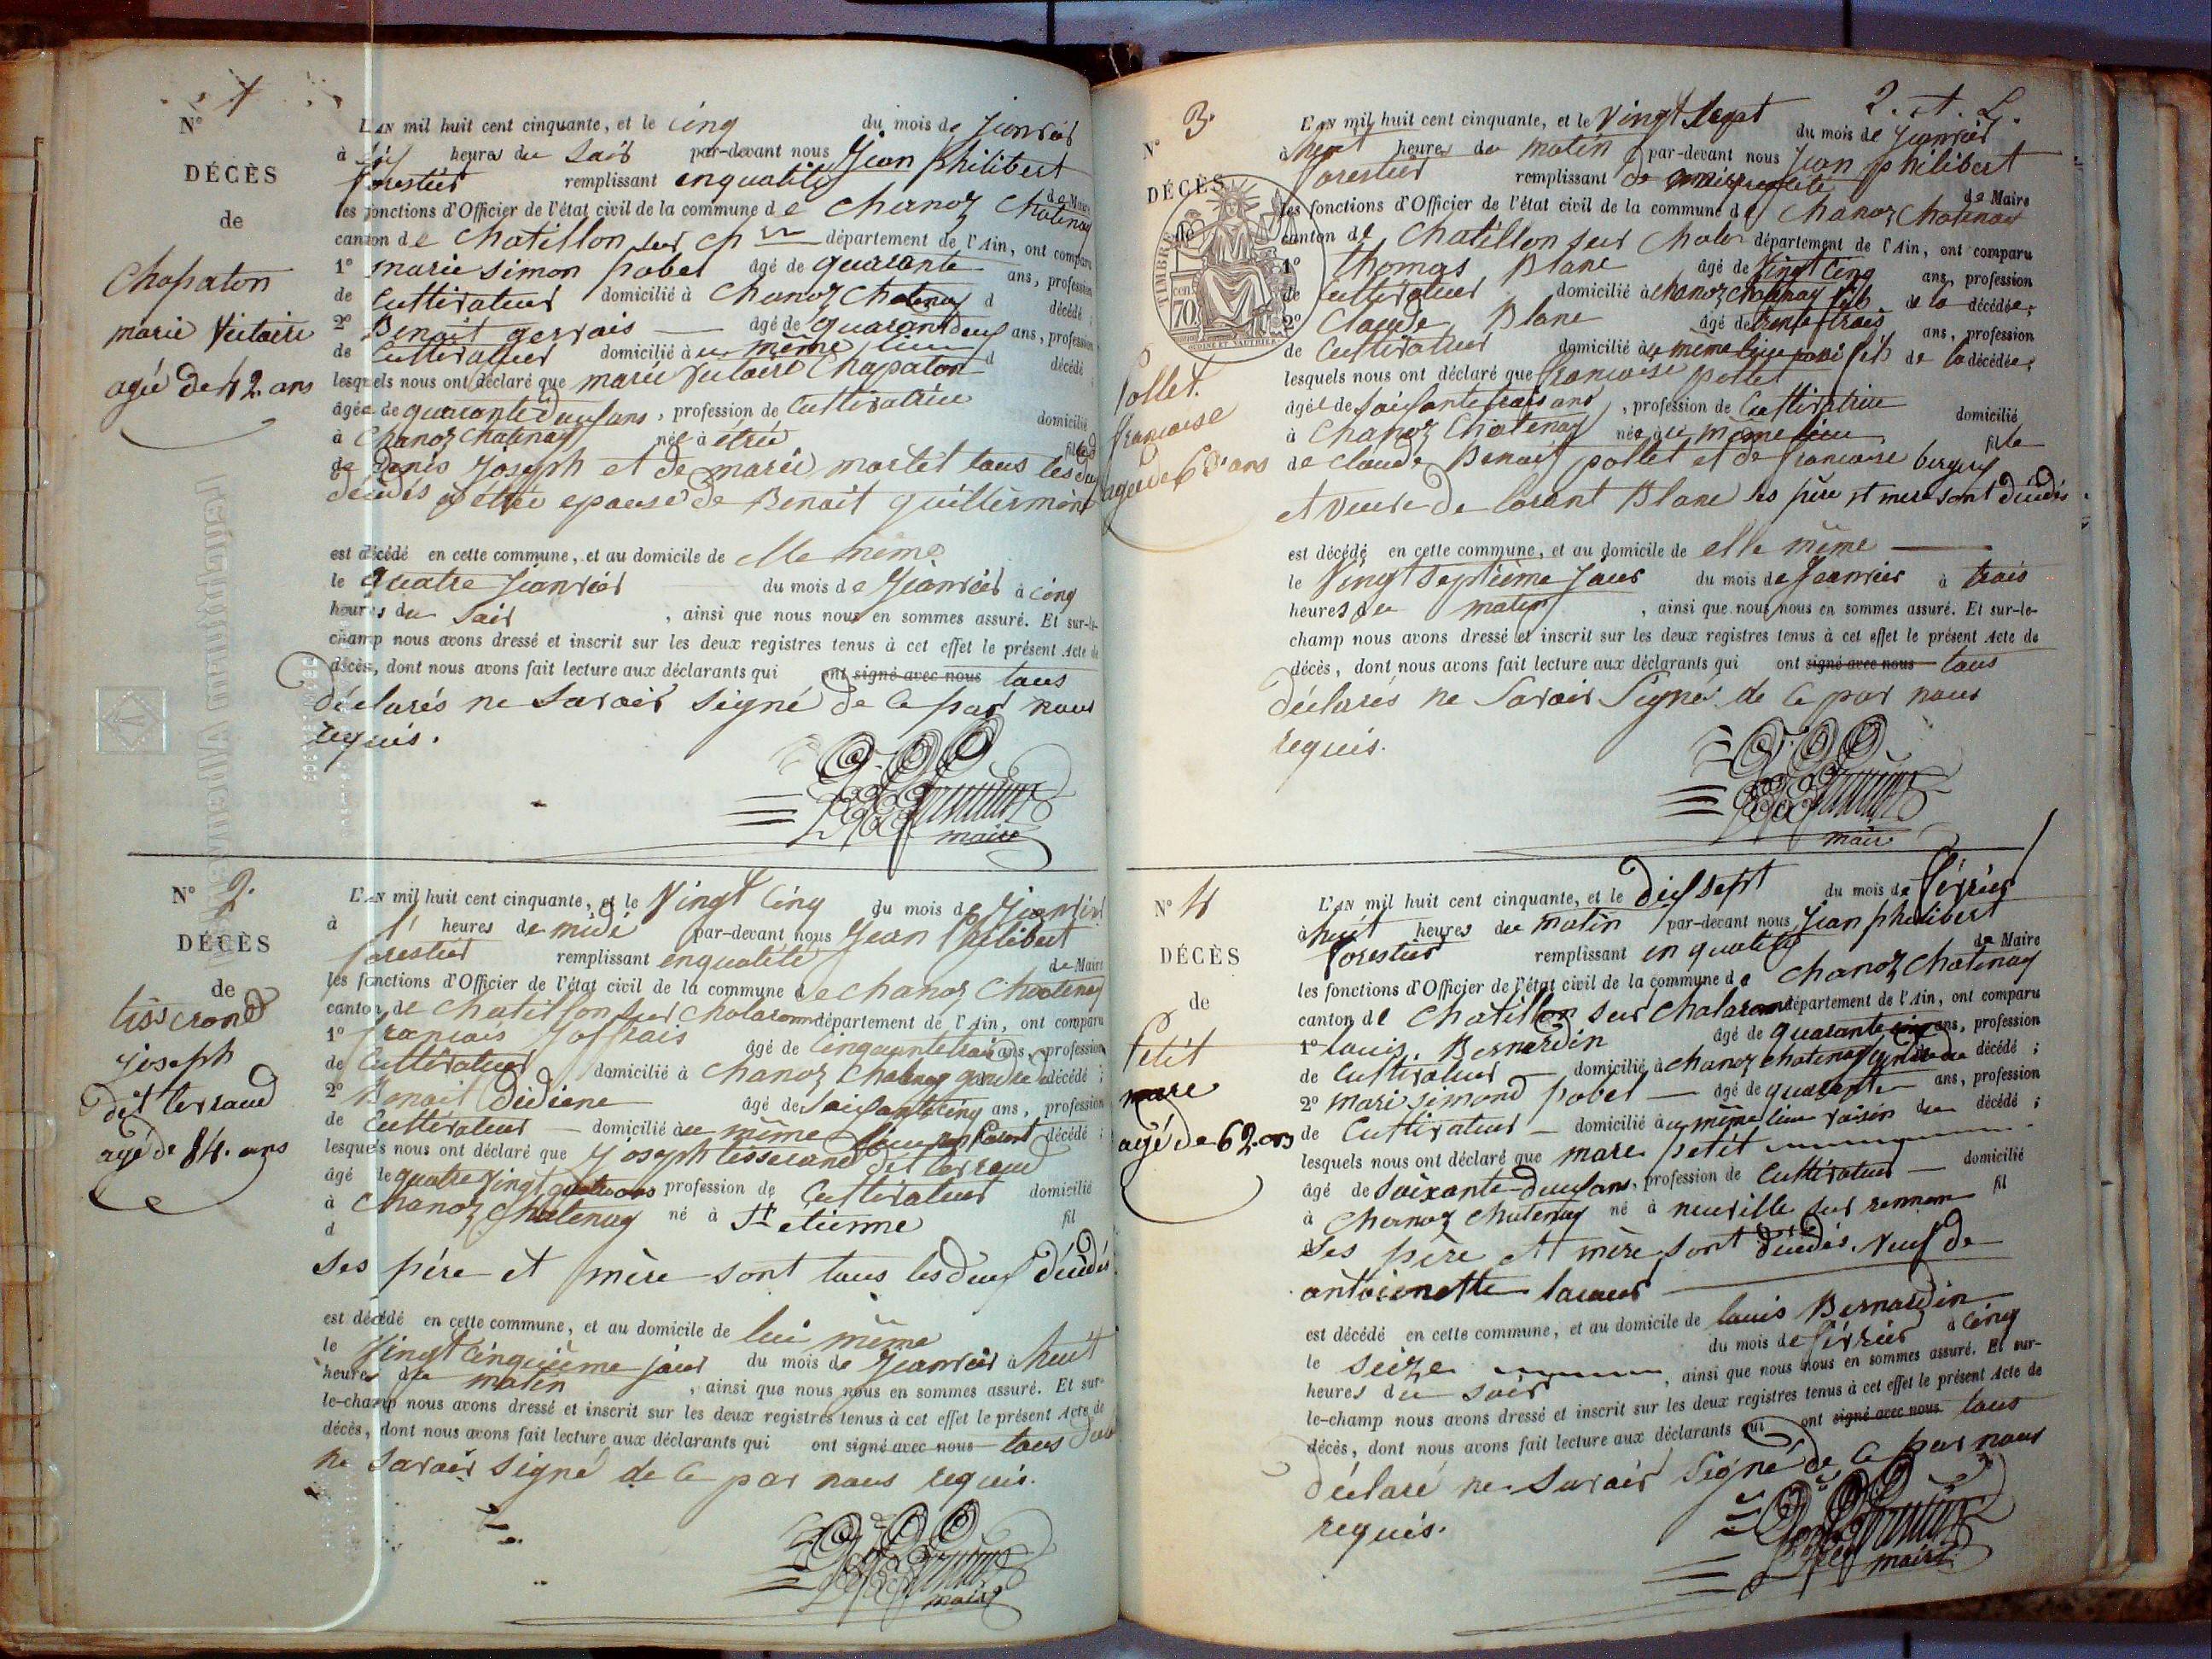 Nº 1
DÉCÈS
de
Chapaton
marie Victoire
agée de 42. ans
L'AN mil huit cent cinquante, et le cinq du mois de Janvier
à six heures du Soir par-devant nous Jean philibert
forestier remplissant enqualité de Maire
les fonctions d'Officier de l'état civil de la commune de Chanoz Chatenay
canton de Chatillon sur Ch département de l'Ain, ont comparu
1º marie simon pobel âgé de quarante ans, profession
de Cultivateur domicilié à Chanoz Chatenay d décédé ;
2º Benoit gervais âgé de quarante deux ans, profession
de Cultivateur domicilié à u même lieu d décédé ;
lesquels nous ont déclaré que marie victoire Chapaton
âgée de quarante deux ans, profession de Cultivatrice domicilié
à Chanoz Chatenay née à étrée fille
de Denis Joseph et de marie martet tous les deux
décédés à étrée epouse de Benoit guillermin
est décédé en cette commune, et au domicile de elle même
le quatre Janvier du mois de Janvier à cinq
heures du Soir , ainsi que nous nous en sommes assuré. Et sur-le-
champ nous avons dressé et inscrit sur les deux registres tenus à cet effet le présent Acte de
décès, dont nous avons fait lecture aux déclarants qui ont signé avec nous tous
déclarés ne savoir signé de ce par nous
requis.
maire
Nº 2.
DÉCÈS
de
tisserand
joseph
dit terraud
agé de 84. ans
L'AN mil huit cent cinquante, et le Vingt Cinq du mois de Janvier
à 1 heures de midi par-devant nous Jean Philibert
forestier remplissant enqualité de Maire
les fonctions d'Officier de l'état civil de la commune de Chanoz Chatenay
canton de Chatillon sur Chalaronne département de l'Ain, ont comparu
1º francois Joffrais âgé de Cinquante trois ans, profession
de Cultivateur domicilié à Chanoz Chatenay gendre décédé ;
2º Benoit Didiene âgé de Soixante cinq ans, profession
de Cultivateur domicilié à u même lieu décédé ;
lesquels nous ont déclaré que Joseph tesserand dit terraud
âgé de quatre vingt quatre ans profession de Cultivateur domicilié
à Chanoz Chatenay né à St etienne
d fil
Ses père et mère sont tous les deux décédés
est décédé en cette commune, et au domicile de lui même
le Vingt Cinquième jour du mois de Janvier à huit
heures du matin , ainsi que nous nous en sommes assuré. Et sur-
le-champ nous avons dressé et inscrit sur les deux registres tenus à cet effet le présent Acte de
décès, dont nous avons fait lecture aux déclarants qui ont signé avec nous tous
ne savoir signé de ce par nous requis.
maire
Nº 3.
DÉCÈS
de
TIMBRE
70
pollet.
francoise
agée de 63 ans
L'AN mil huit cent cinquante, et le Vingt Sept du mois de Janvier
à huit heures du matin par-devant nous Jean philibert
forestier remplissant de Maire
les fonctions d'Officier de l'état civil de la commune de Chanoz Chatenay
canton de Chatillon sur Chalar département de l'Ain, ont comparu
1º thomas Blanc âgé de Vingt Cinq ans, profession
de Cultivateur domicilié à chanoz chatenay fils de la décédée ;
2º Claude Blanc âgé de trente trois ans, profession
de Cultivateur domicilié à u même lieu fils de la décédée ;
lesquels nous ont déclaré que francoise pollet
âgée de Soixante trois ans, profession de Cultivatrice domicilié
à Chanoz Chatenay née à u même lieu fille
de claude Benoit pollet et de francoise bergery
et veuve de lorent Blanc ses père et mere sont décédés
est décédé en cette commune, et au domicile de elle même
le Vingt Septième Jour du mois de Janvier à trois
heures du matin , ainsi que nous nous en sommes assuré. Et sur-le-
champ nous avons dressé et inscrit sur les deux registres tenus à cet effet le présent Acte de
décès, dont nous avons fait lecture aux déclarants qui ont signé avec nous tous
déclarés ne savoir Signer de ce par nous
requis.
maire
Nº 4
DÉCÈS
de
Petit
marc
agé de 62. ans
L'AN mil huit cent cinquante, et le dix sept du mois de février
à huit heures du matin par-devant nous Jean philibert
forestier remplissant en qualité de Maire
les fonctions d'Officier de l'état civil de la commune de Chanoz Chatenay
canton de Chatillon sur Chalaronne département de l'Ain, ont comparu
1º louis Bernardin âgé de quarante cinq ans, profession
de Cultivateur domicilié à chanoz chatenay gendre du décédé ;
2º mari simond pobel âgé de quarante ans, profession
de Cultivateur domicilié à u même lieu voisin du décédé ;
lesquels nous ont déclaré que marc petit
âgé de Soixante-deux ans, profession de Cultivateur domicilié
à Chanoz Chatenay né à neuville sur rennon fil
Ses père et mère sont décédés Veuf de
antoinette lacour
est décédé en cette commune, et au domicile de louis Bernardin
le seize du mois de février à cinq
heures du soir , ainsi que nous nous en sommes assuré. Et sur-
le-champ nous avons dressé et inscrit sur les deux registres tenus à cet effet le présent Acte de
décès, dont nous avons fait lecture aux déclarants qui ont signé avec nous tous
déclaré ne savoir Signé de ce par nous
requis.
maire